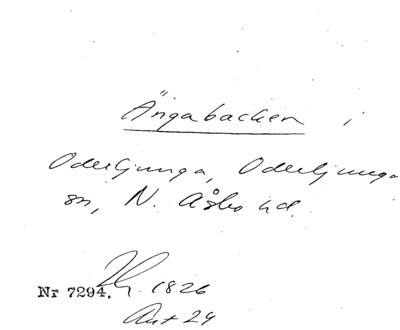 Ängabacken i
Oderljunga, Oderljunga
sn, N. Åsbo hd.
1826
Nr 7294.
Akt 24